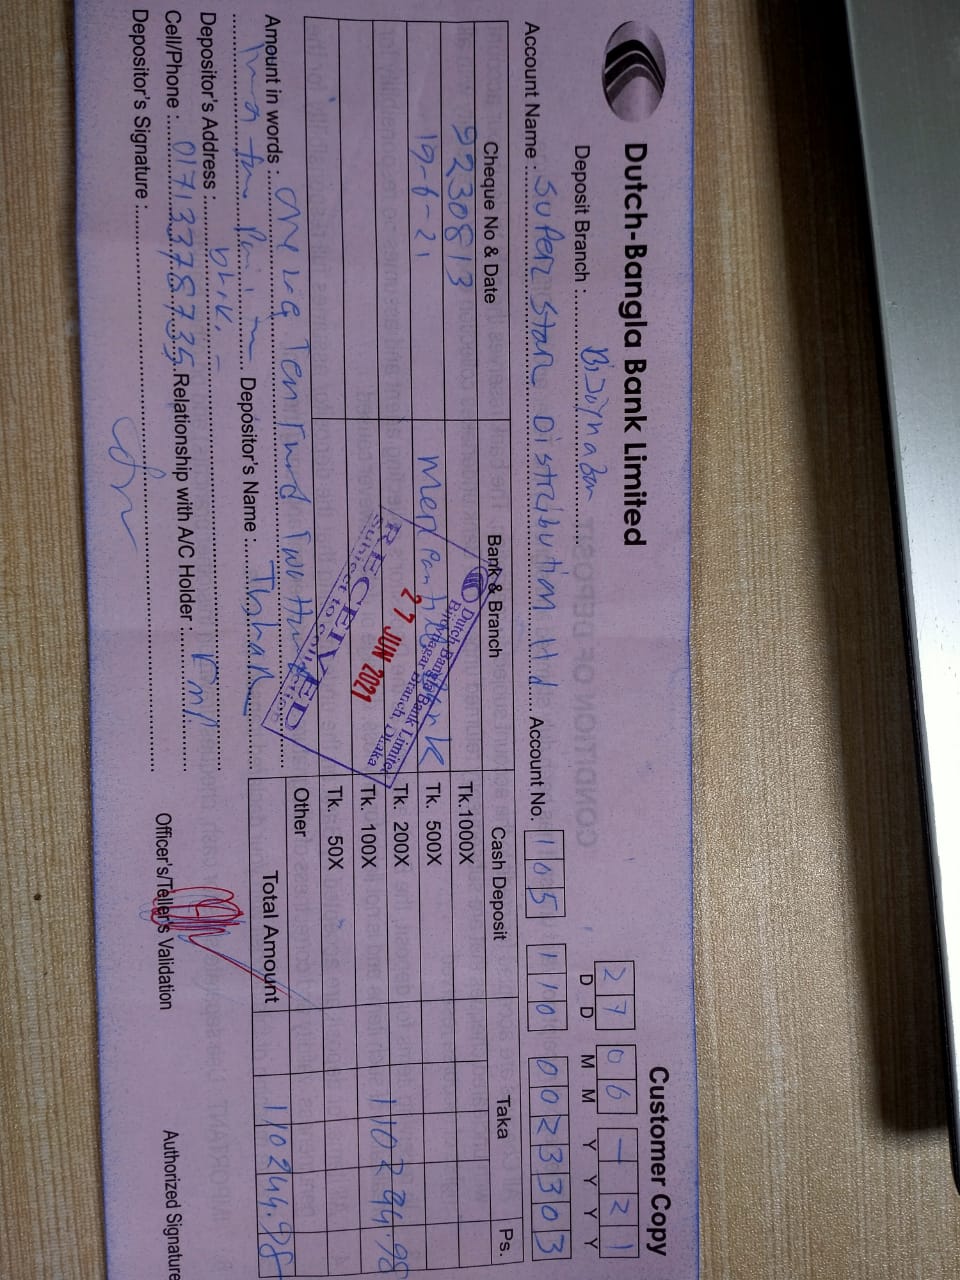 Dutch-Bangla Bank Limited
Customer Copy
Deposit Branch : Bijoynagar
27 06 - 21
D D M M Y Y Y Y
Account Name : Super Star Distribution Ltd Account No. 105 110 0023303
Cheque No & Date Bank & Branch Cash Deposit Taka Ps.
9230813 Tk.1000X
19-6-21 Mercantile Bank Tk. 500X
Tk. 200X 110294.98
Tk. 100X
Tk. 50X
Other
Total Amount 110244.98
Dutch Bangla Bank Limited
Branch, Dhaka
27 JUN 2021
RECEIVED
Subject to
Amount in words : One Lac Ten Two
Depositor's Name :
Depositor's Address :
Cell/Phone : 01713378735 Relationship with A/C Holder : Emp
Depositor's Signature :
Officer's/Teller's Validation
Authorized Signature
CONDITION OF DEPOSIT